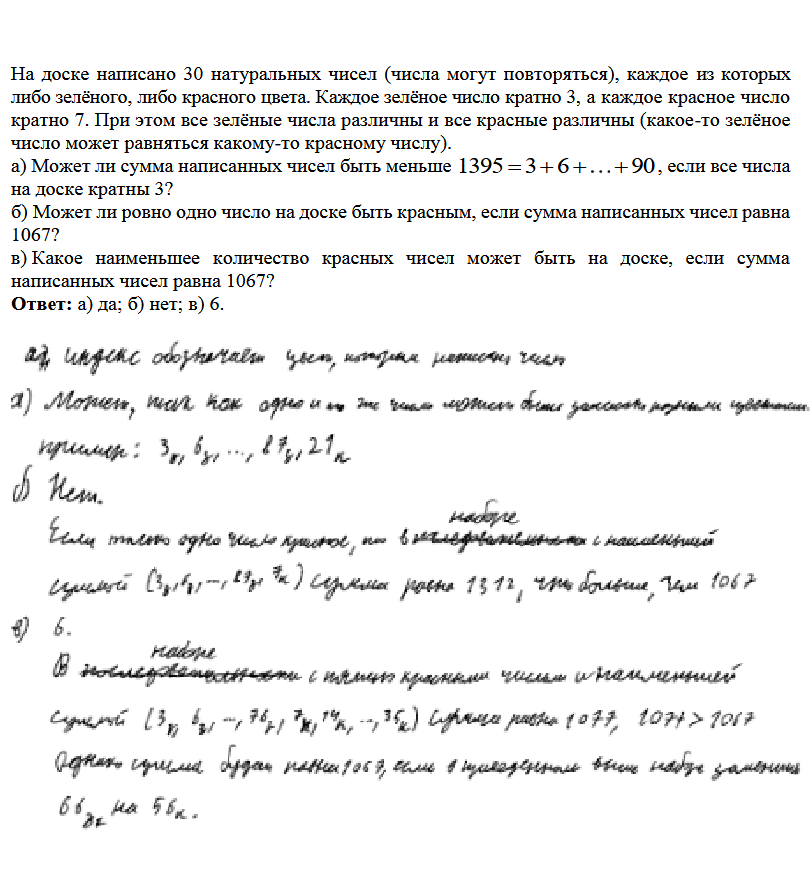 На доске написано 30 натуральных чисел (числа могут повторяться), каждое из которых
либо зелёного, либо красного цвета. Каждое зелёное число кратно 3, а каждое красное число
кратно 7. При этом все зелёные числа различны и все красные различны (какое-то зелёное
число может равняться какому-то красному числу).
а) Может ли сумма написанных чисел быть меньше 1395 = 3 + 6 + … + 90, если все числа
на доске кратны 3?
б) Может ли ровно одно число на доске быть красным, если сумма написанных чисел равна
1067?
в) Какое наименьшее количество красных чисел может быть на доске, если сумма
написанных чисел равна 1067?
Ответ: а) да; б) нет; в) 6.
индекс обозначает цвет, которым число
а) Может, так как одно и то же число может быть
пример: 3з, 6з, ..., 87з, 21к
б) Нет.
наборе
Если только одно число красное, то в с наименьшей
суммой (3з, 6з, ..., 87з, 7к) сумма равна 1312, что больше, чем 1067
в) 6.
наборе
В с пятью красными числами и наименьшей
суммой (3з, 6з, ..., 7к, 14к, ..., 35к) сумма равна 1077, > 1067
Однако сумма будет равна 1067, если в приведенном выше наборе заменить
66з на 56к.